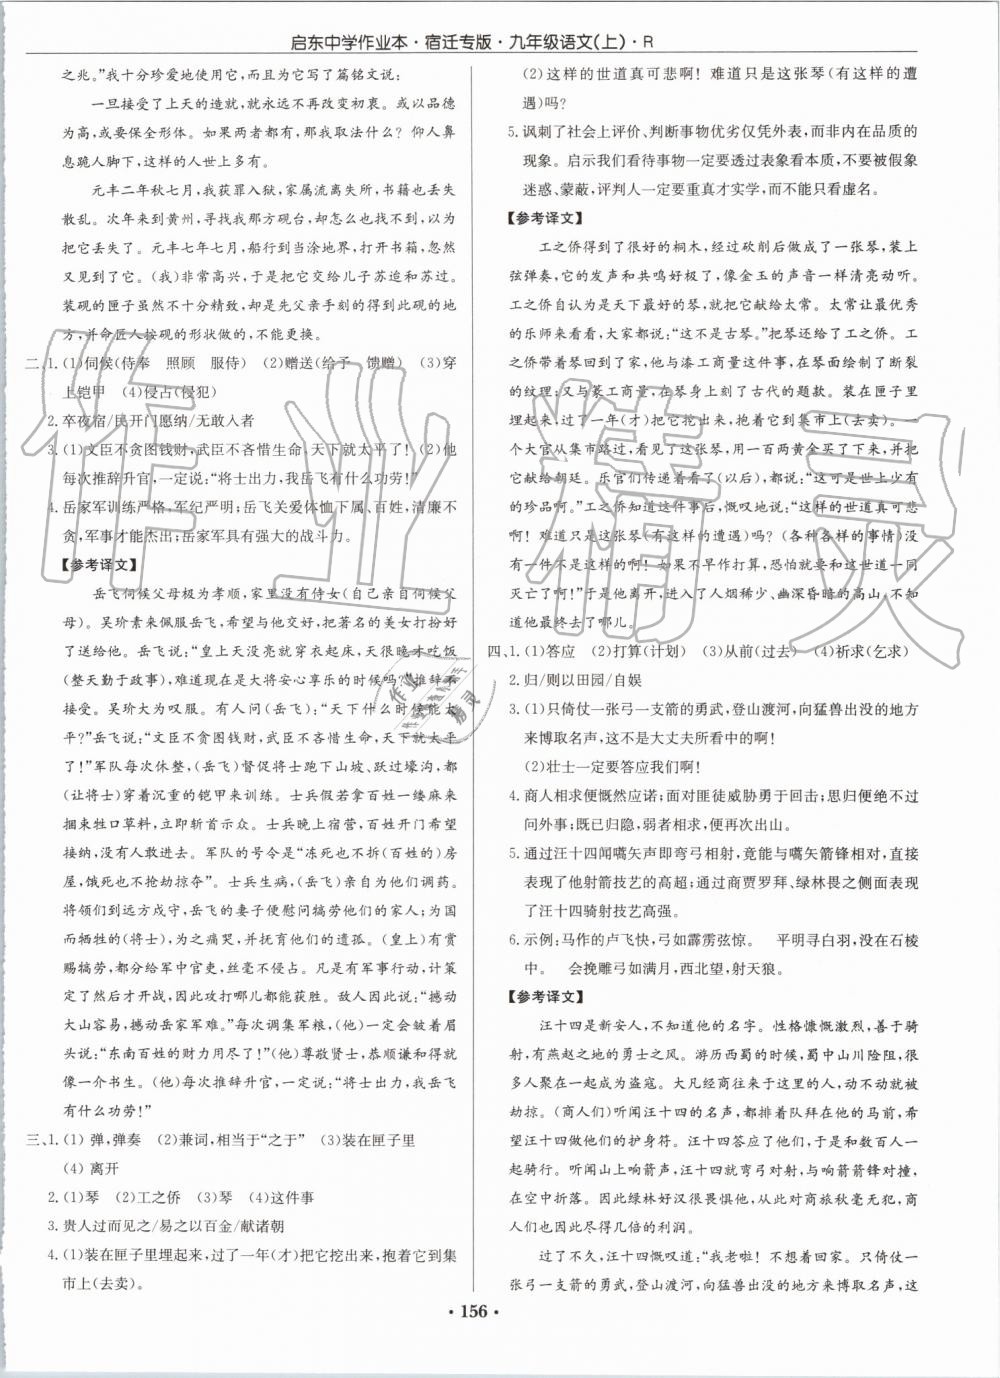 启东中学作业本·宿迁专版·九年级语文(上)·R
之兆。”我十分珍爱地使用它,而且为它写了篇铭文说:
一旦接受了上天的造就,就永远不再改变初衷。或以品德
为高,或要保全形体。如果两者都有,那我取法什么?仰人鼻
息跪人脚下,这样的人世上多有。
元丰二年秋七月,我获罪入狱,家属流离失所,书籍也丢失
散乱。次年来到黄州,寻找我那方砚台,却怎么也找不到,以为
把它丢失了。元丰七年七月,船行到当涂地界,打开书箱,忽然
又见到了它。(我)非常高兴,于是把它交给儿子苏迨和苏过。
装砚的匣子虽然不十分精致,却是先父亲手刻的得到此砚的地
方,并命匠人按砚的形状做的,不能更换。
二、1. (1)伺候(侍奉 照顾 服侍) (2)赠送(给予 馈赠) (3)穿
上铠甲 (4)侵占(侵犯)
2. 卒夜宿/民开门愿纳/无敢入者
3. (1)文臣不贪图钱财,武臣不吝惜生命,天下就太平了! (2)他
每次推辞升官,一定说:“将士出力,我岳飞有什么功劳!”
4. 岳家军训练严格,军纪严明;岳飞关爱体恤下属、百姓,清廉不
贪,军事才能杰出;岳家军具有强大的战斗力。
【参考译文】
岳飞伺候父母极为孝顺,家里没有侍女(自己亲自伺候父
母)。吴玠素来佩服岳飞,希望与他交好,把著名的美女打扮好
了送给他。岳飞说:“皇上天没亮就穿衣起床,天很晚才吃饭
(整天勤于政事),难道现在是大将安心享乐的时候吗?”推辞不
接受。吴玠大为叹服。有人问(岳飞):“天下什么时候能太
平?”岳飞说:“文臣不贪图钱财,武臣不吝惜生命,天下就太平
了!”军队每次休整,(岳飞)督促将士跑下山坡、跃过壕沟,都
(让将士)穿着沉重的铠甲来训练。士兵假如拿百姓一缕麻来
捆束牲口草料,立即斩首示众。士兵晚上宿营,百姓开门希望
接纳,没有人敢进去。军队的号令是“冻死也不拆(百姓的)房
屋,饿死也不抢劫掠夺”。士兵患病,(岳飞)亲自为他们调药。
将领们去远方戍守,岳飞的妻子便慰问犒劳他们的家人;为国
而牺牲的(将士),为之痛哭,并抚育他们的遗孤。(皇上)有赏
赐犒劳,分给军中官吏,丝毫不侵占。凡是有军事行动,计策
决定然后才开战,因此攻打哪儿都能获胜。敌人因此说:“撼动
大山容易,撼动岳家军难。”每次调集军粮,(他)一定会皱着眉
头说:“东南百姓的财力用尽了!”(他)尊敬贤士,恭顺谦和得就
像一介书生。(他)每次推辞升官,一定说:“将士出力,我岳飞
有什么功劳!”
三、1. (1) 弹,弹奏 (2)兼词,相当于“之于” (3)装在匣子里
(4) 离开
2. (1)琴 (2)工之侨 (3)琴 (4)这件事
3. 贵人过而见之/易之以百金/献诸朝
4. (1)装在匣子里埋起来,过了一年(才)把它挖出来,抱着它到集
市上(去卖)。
(2)这样的世道真可悲啊! 难道只是这张琴(有这样的遭
遇)吗?
5. 讽刺了社会上评价、判断事物优劣仅凭外表,而非内在品质的
现象。启示我们看待事物一定要透过表象看本质,不要被假象
迷惑、蒙蔽,评判人一定要重真才实学,而不能只看虚名。
【参考译文】
工之侨得到了很好的桐木,经过砍削后做成了一张琴,装上
弦弹奏,它的发声和共鸣好极了,像金玉的声音一样清亮动听。
工之侨自以为是天下最好的琴,就把它献给太常。太常让最优秀
的乐师来看看,大家都说:“这不是古琴。”把琴还给了工之侨。工
之侨带着琴回到了家,他与漆工商量这件事,在琴里制作了断裂
的纹理;又与篆工商量,在琴上刻了古代的题款。装在匣子里
埋起来,过了一年(才)把它挖出来,抱着它到集市上(去卖)。一
个大官从集市路过,见到了这张琴,用一百两金子买了它,把
它献给朝廷。乐官们传递着看了(以后),都说:“这是世上少有
的珍品啊。”工之侨知道这件事后,慨叹地说:“这样的世道真可悲
啊! 难道只是这张琴(有这样的遭遇)吗? (各种各样的事情)没有
不是这样的啊! 如果不早作打算,恐怕就要和这个世道一同
灭亡了啊!”于是他离开,进入了人烟稀少、幽深昏暗的高山,不知
道他最终去了哪儿。
四、1. (1)答应 (2)打算(计划) (3)从前(过去) (4)祈求(乞求)
2. 归/则以田园/自娱
3. (1)只倚仗一张弓一支箭的勇武,登山渡河,向猛兽出没的地方
来博取名声,这不是大丈夫所看中的啊!
(2)壮士一定要答应我们啊!
4. 商人相求便慨然应诺;面对匪徒威胁勇于回击;思归便绝不过
问外事;既已归隐,弱者相求,便再次出山。
5. 通过汪十四闻嚆矢声即弯弓相射,竟能与嚆矢箭锋相对,直接
表现了他射箭技艺的高超;通过商贾罗拜、绿林畏之侧面表现
了汪十四骑射技艺高强。
6. 示例:马作的卢飞快,弓如霹雳弦惊。 平明寻白羽,没在石棱
中。 会挽雕弓如满月,西北望,射天狼。
【参考译文】
汪十四是新安人,不知道他的名字。性格慷慨激烈,善于骑
射,有燕赵之地的勇士之风。游历西蜀的时候,蜀中山川险阻,很
多人聚在一起成为盗寇。大凡经商来往于这里的人,动不动就被
劫掠。(商人们)听闻汪十四的名声,都排着队拜在他的马前,希
望汪十四做他们的护身符。汪十四答应了他们,于是和数百人一
起上路。听闻山上响箭声,汪十四就弯弓对射,与响箭箭锋对撞,
在空中折落。因此绿林好汉很畏惧他,从此对商旅秋毫无犯,商
贾们也因此尽得几倍的利润。
过了不久,汪十四慨叹道:“我老啦! 不想着回家。只倚仗一
张弓一支箭的勇武,登山渡河,向猛兽出没的地方来博取名声,这
·156·
作业精灵